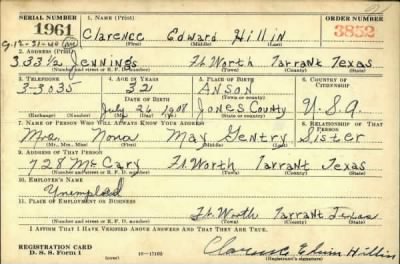 SERIAL NUMBER 1. NAME (Print) ORDER NUMBER
1961 Clarence Edward Hillin 3852
(First) (Middle) (Last)
2. ADDRESS (Print)
333 1/2 Jennings Ft Worth Tarrant Texas
(Number and street or R. F. D. number) (Town) (County) (State)
3. TELEPHONE 4. AGE IN YEARS 5. PLACE OF BIRTH 6. COUNTRY OF CITIZENSHIP
3-3035 32 Anson
DATE OF BIRTH (Town or county)
July 26 1908 Jones County U.S.A
(Exchange) (Number) (Mo.) (Day) (Yr.) (State or country)
7. NAME OF PERSON WHO WILL ALWAYS KNOW YOUR ADDRESS 8. RELATIONSHIP OF THAT PERSON
Mrs. Nona May Gentry Sister
(Mr., Mrs., Miss) (First) (Middle) (Last)
9. ADDRESS OF THAT PERSON
728 McCary Ft. Worth Tarrant Texas
(Number and street or R. F. D. number) (Town) (County) (State)
10. EMPLOYER'S NAME
11. PLACE OF EMPLOYMENT OR BUSINESS
Ft. Worth Tarrant Texas
(Number and street or R. F. D. number) (Town) (County) (State)
I AFFIRM THAT I HAVE VERIFIED ABOVE ANSWERS AND THAT THEY ARE TRUE.
REGISTRATION CARD
D. S. S. Form 1 Clarence Edwin Hillin
(over) (Registrant's signature)